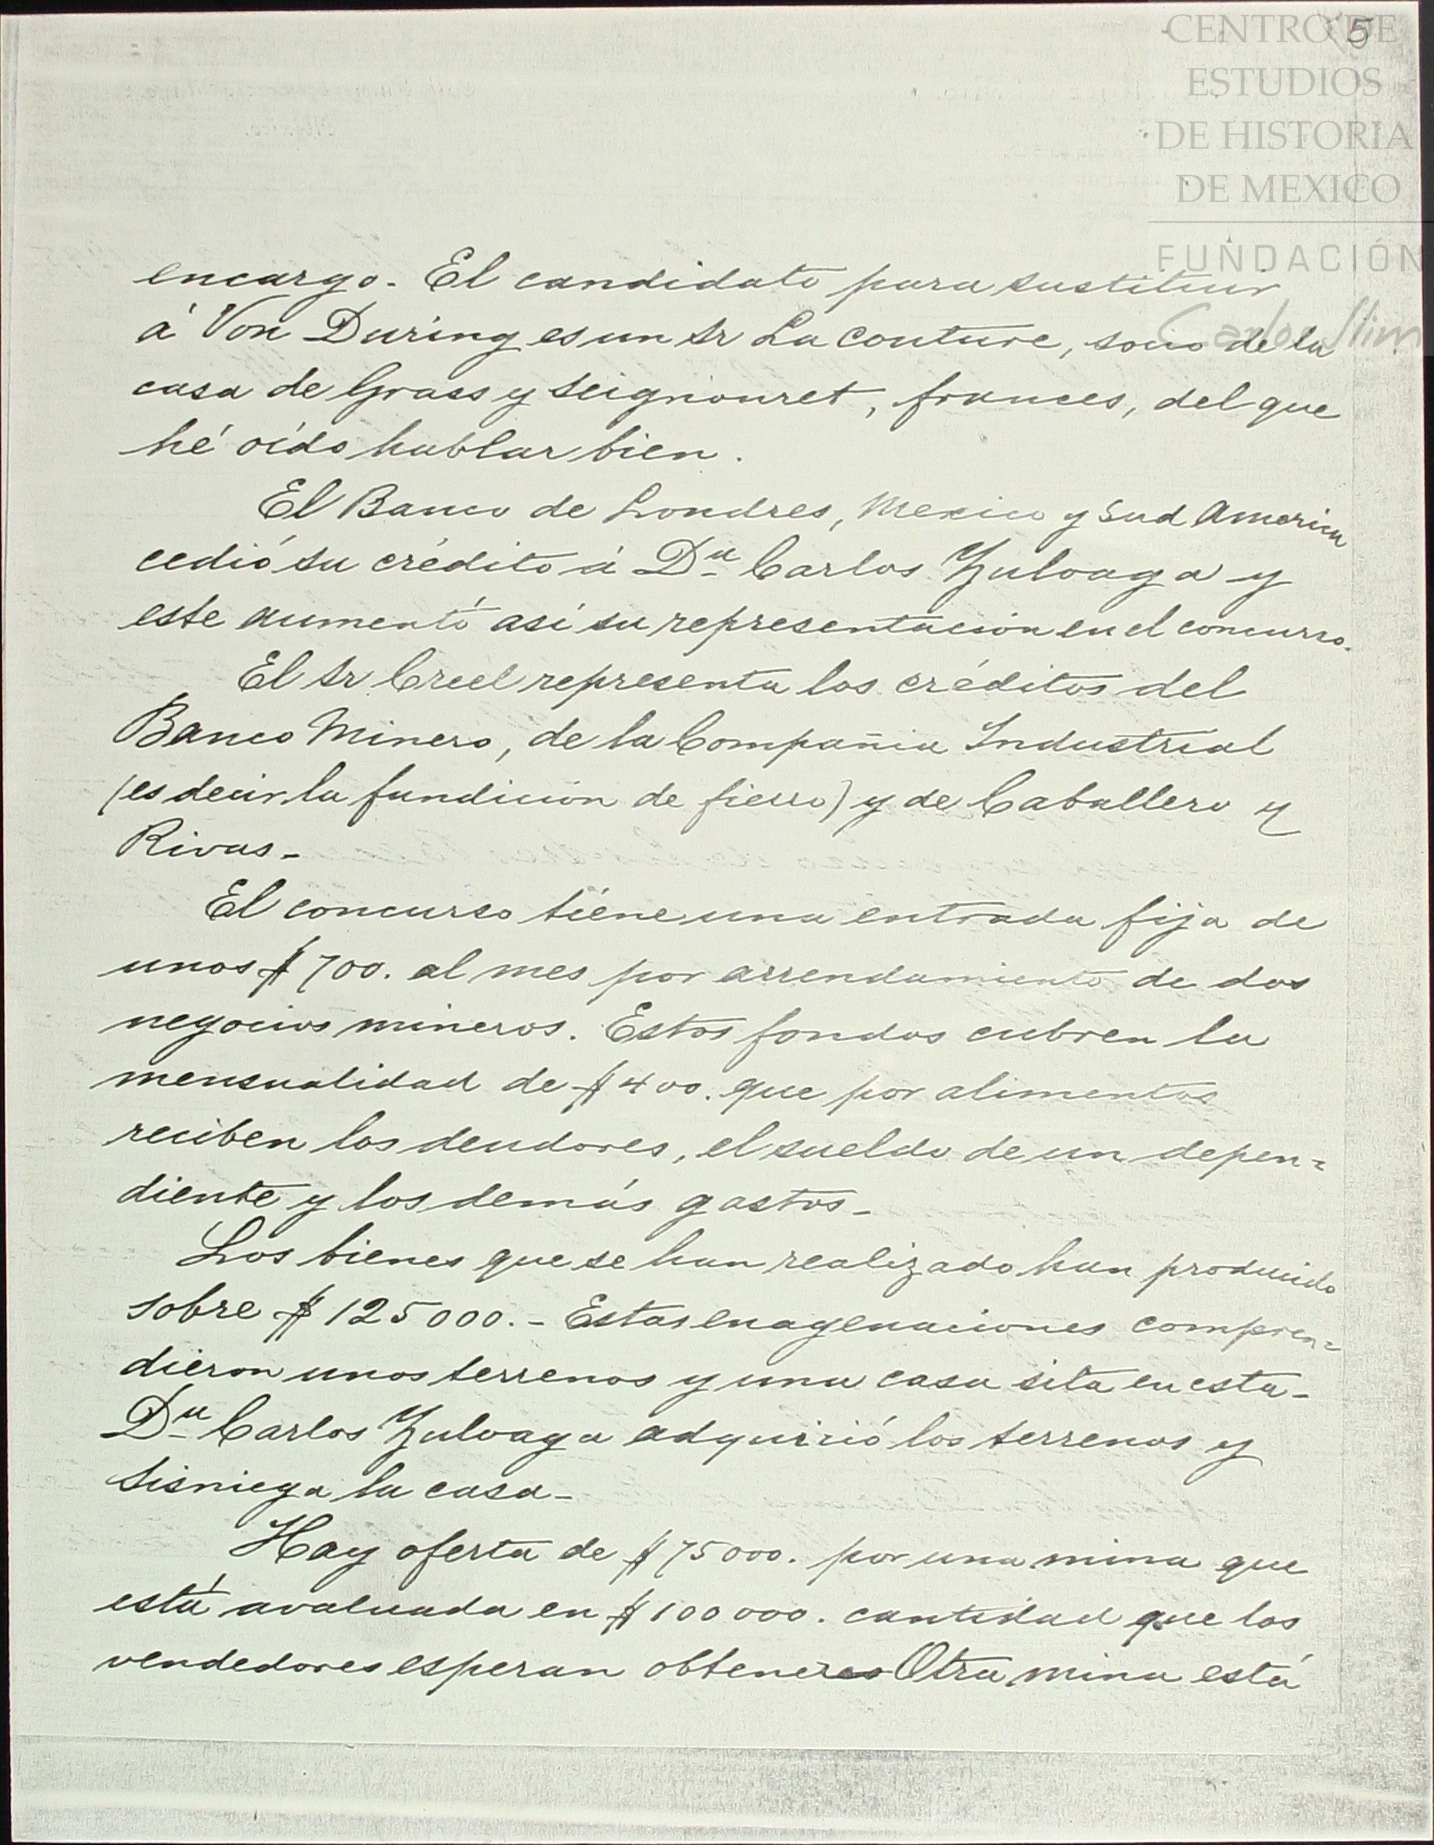 5
CENTRO DE
ESTUDIOS
DE HISTORIA
DE MEXICO
FUNDACIÓN
Carlos Slim
encargo. El candidato para sustituir
á Von Düring es un Sr La Couture, socio de la
casa de Grass y Seignouret, frances, del que
hé oído hablar bien.
El Banco de Londres, Mexico y Sud America
cedió su crédito á Dn Carlos Zuloaga y
este aumentó así su representación en el concurso.
El Sr Creel representa los créditos del
Banco Minero, de la Compañia Industrial
(es decir la fundición de fierro) y de Caballero y
Rivas-
El concurso tiene una entrada fija de
unos $700. al mes por arrendamiento de dos
negocios mineros. Estos fondos cubren la
mensualidad de $400. que por alimentos
reciben los deudores, el sueldo de un depen=
diente y los demás gastos-
Los bienes que se han realizado han producido
sobre $125000.- Estas enagenaciones compren=
dieron unos terrenos y una casa sita en esta-
Dn Carlos Zuloaga adquirió los terrenos y
Sisniega la casa-
Hay oferta de $75000. por una mina que
está avaluada en $100000. cantidad que los
vendedores esperan obtener Otra mina está